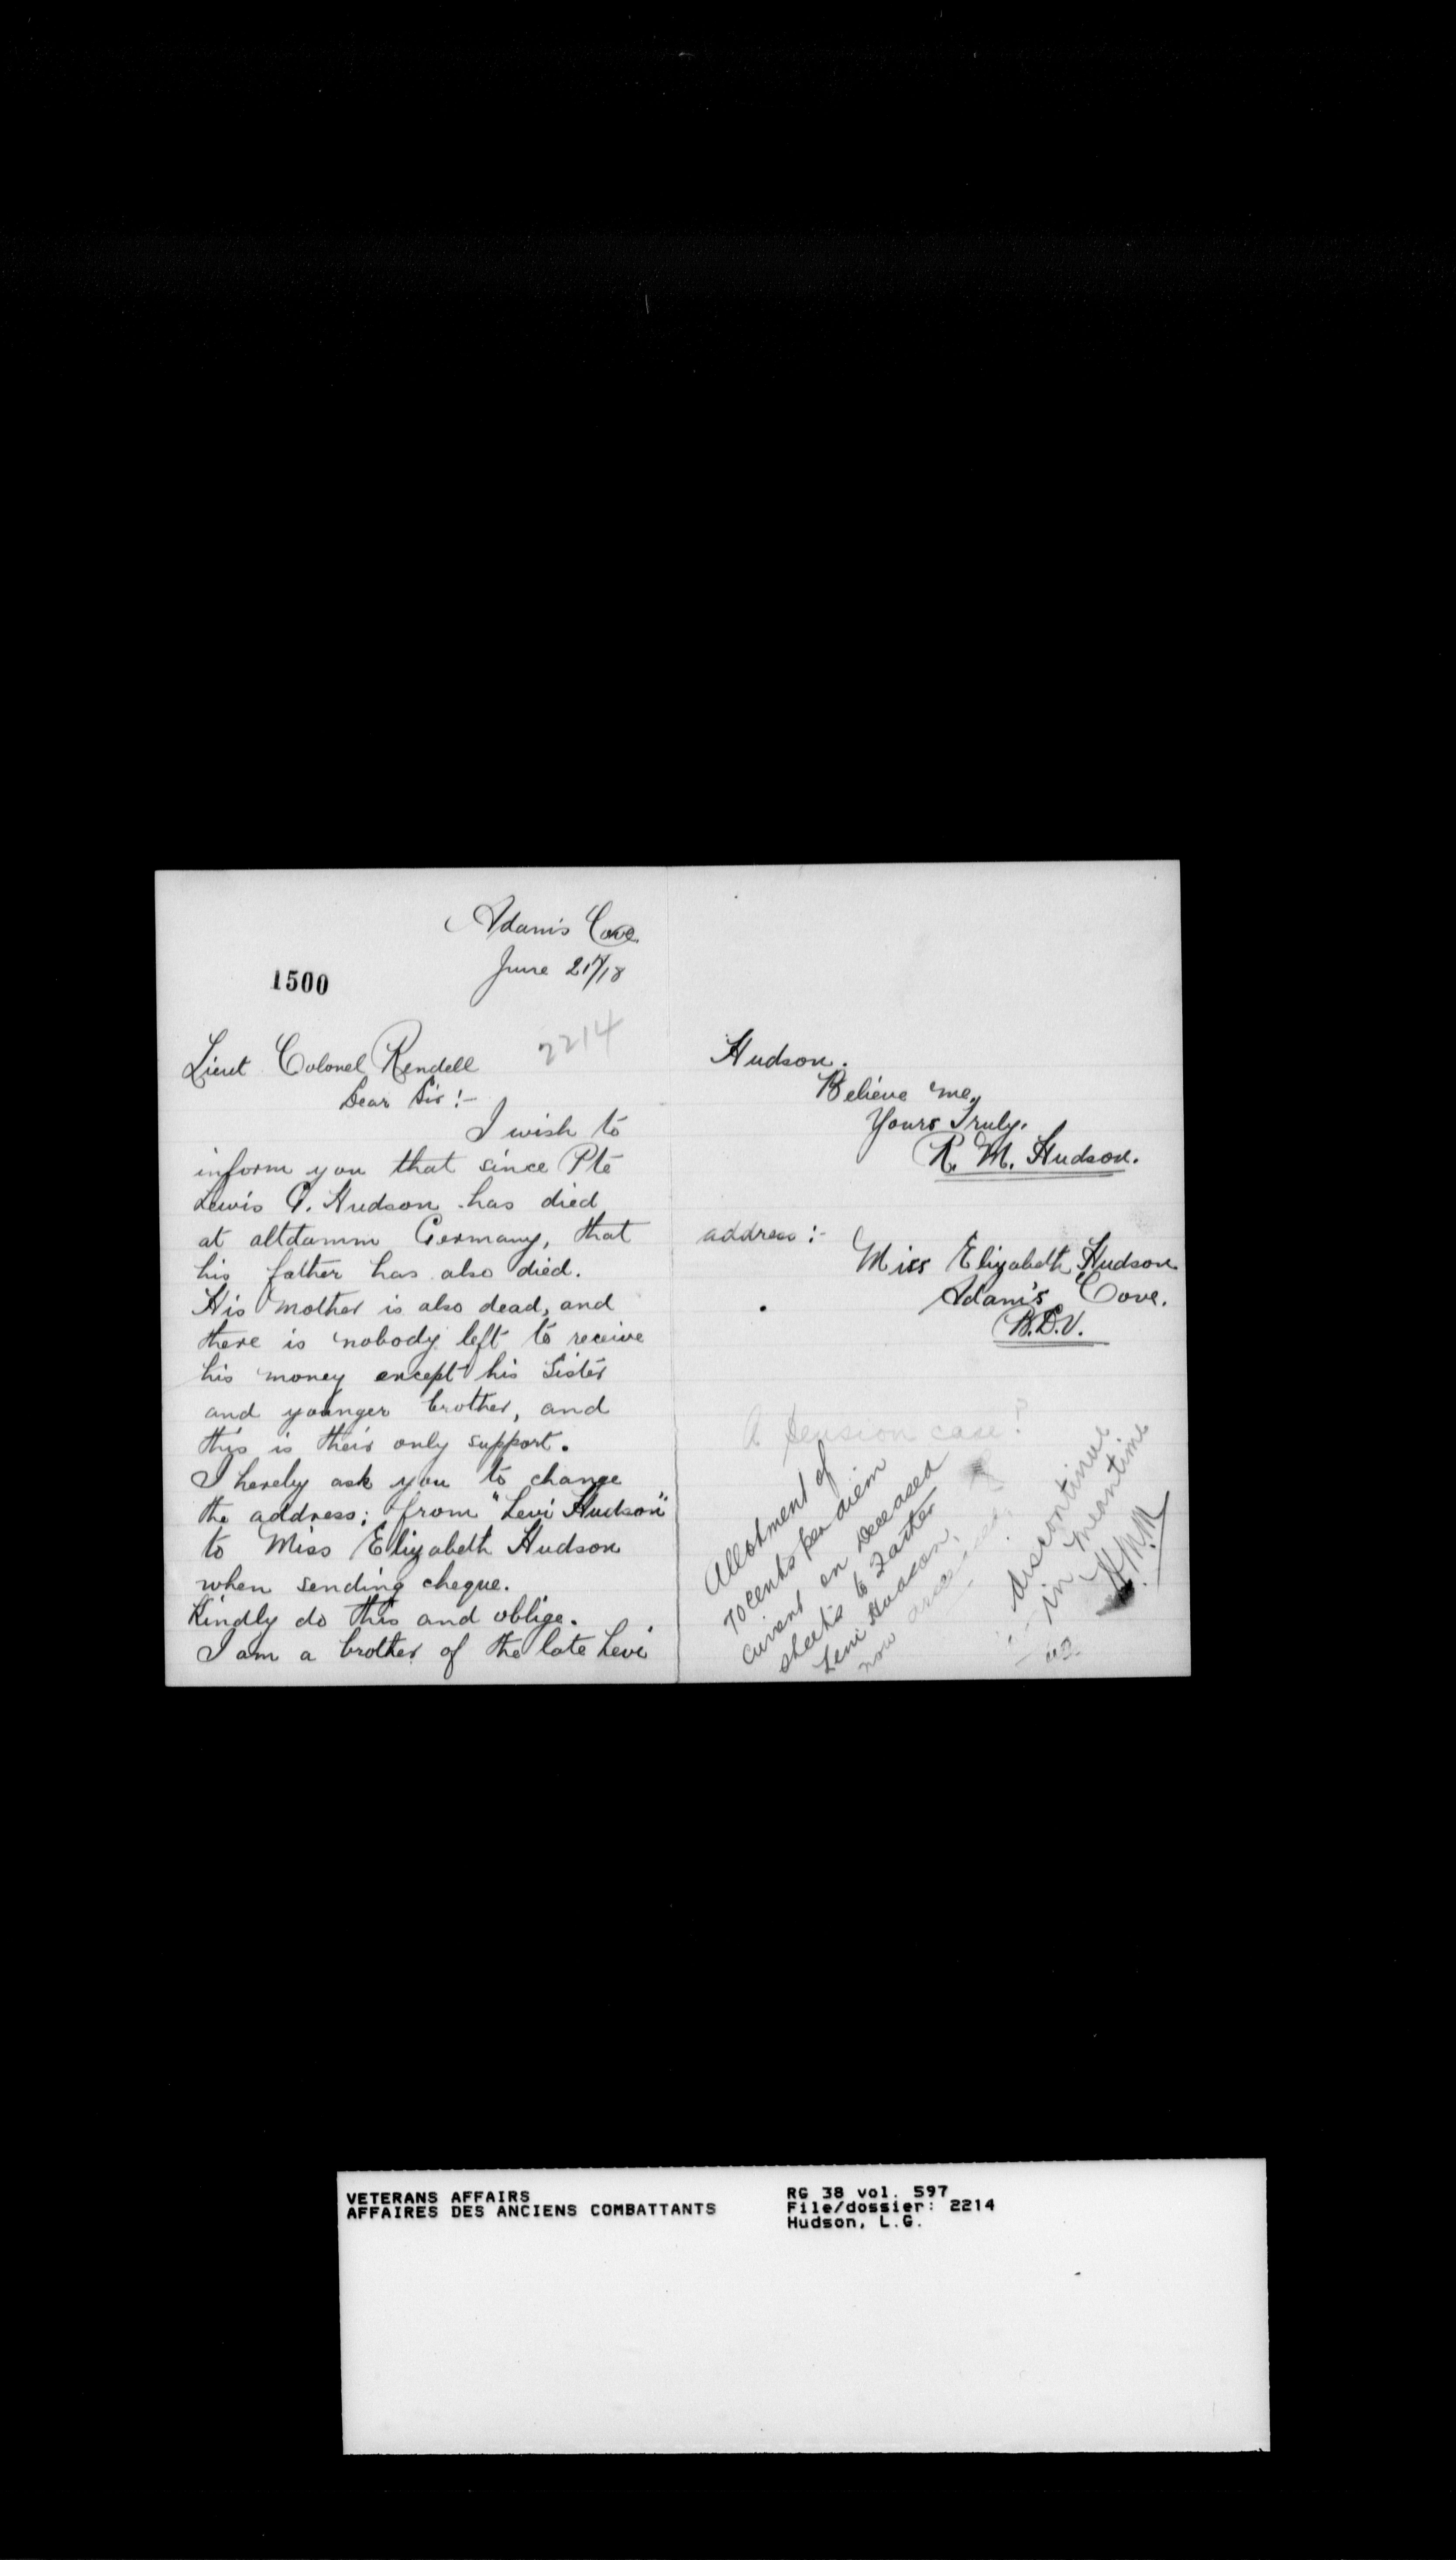 Adam's Cove
June 21st/18
1500
2214
Lieut Colonel Rendell
Dear Sir :-
I wish to
inform you that since Pte
Lewis G. Hudson has died
at altdamm Germany, that
his father has also died.
His mother is also dead, and
there is nobody left to receive
his money except his Sister
and younger brother, and
this is their only support.
I hereby ask you to change
the address; from "Levi Hudson"
to Miss Elizabeth Hudson
when sending cheque.
Kindly do this and oblige.
I am a brother of the late Levi
Hudson.
Believe me,
Yours Truly.
R. M. Hudson.
address :-
Miss Elizabeth Hudson
Adam's Cove.
B.D.V.
A pension case?
Allotment of
70 cents per diem
current on deceased
sheets to Father
Levi Hudson,
now deceased.
discontinue
in meantime
VETERANS AFFAIRS
AFFAIRES DES ANCIENS COMBATTANTS
RG 38 vol. 597
File/dossier: 2214
Hudson, L.G.